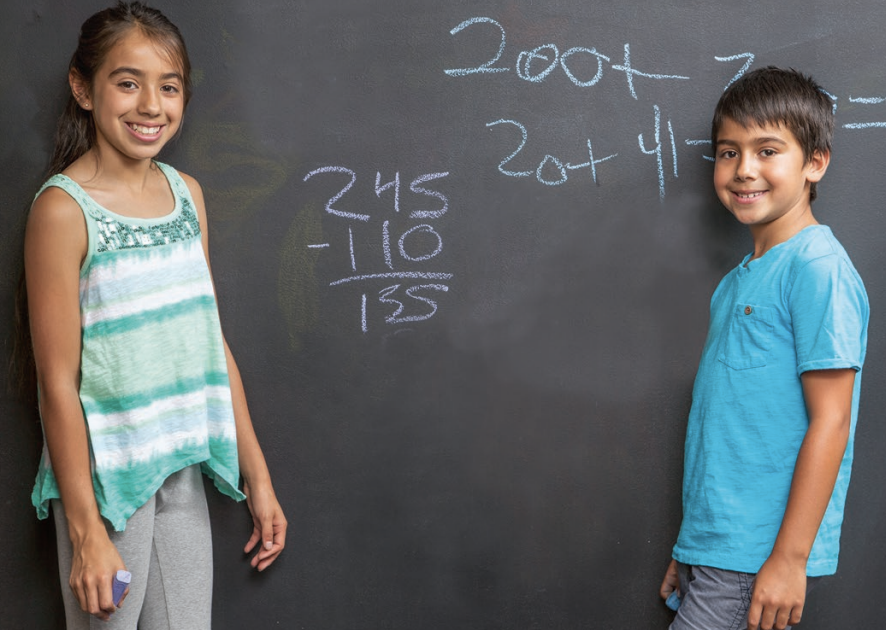 200+ 7 =
20+ 41 =
245
-110
135